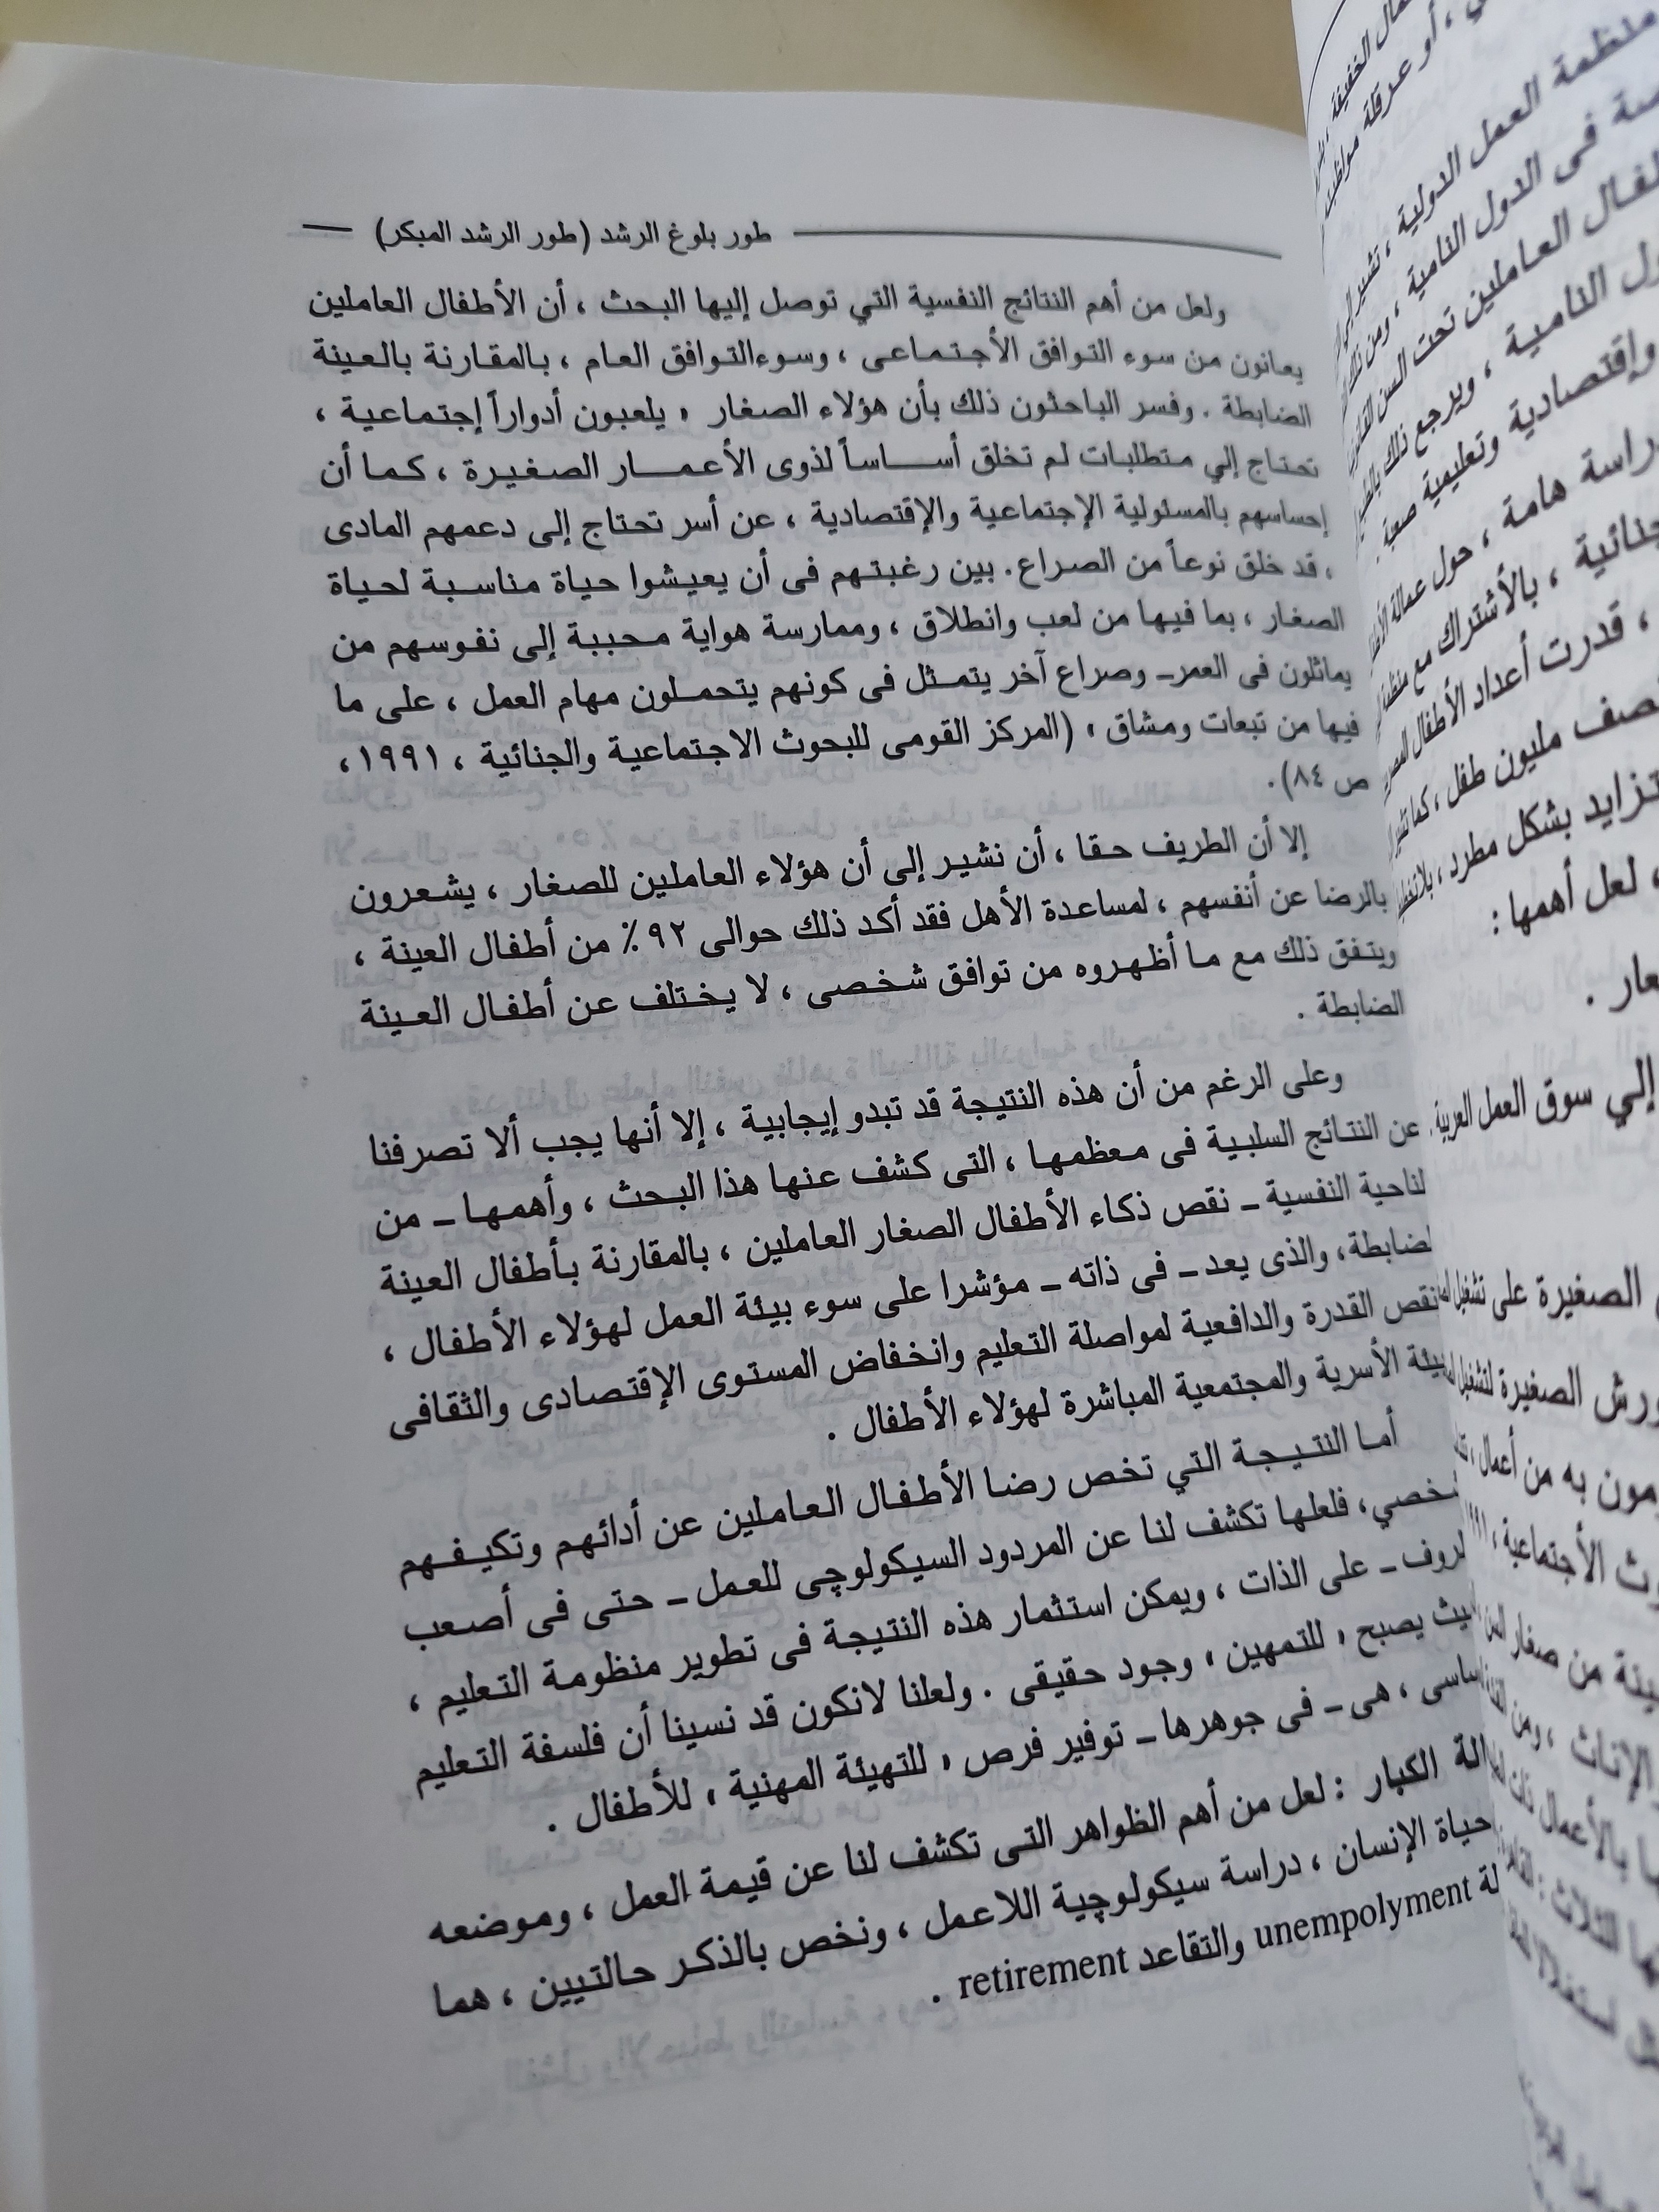 طور بلوغ الرشد (طور الرشد المبكر)
ولعل من أهم النتائج النفسية التي توصل إليها البحث ، أن الأطفال العاملين
يعانون من سوء التوافق الأجتماعى ، وسوءالتوافق العام ، بالمقارنة بالعينة
الضابطة . وفسر الباحثون ذلك بأن هؤلاء الصغار « يلعبون أدواراً إجتماعية ،
تحتاج إلي متطلبات لم تخلق أساساً لذوى الأعمار الصغيرة ، كما أن
إحساسهم بالمسئولية الإجتماعية والإقتصادية ، عن أسر تحتاج إلى دعمهم المادى
، قد خلق نوعاً من الصراع . بين رغبتهم فى أن يعيشوا حياة مناسبة لحياة
الصغار ، بما فيها من لعب وانطلاق ، وممارسة هواية محببة إلى نفوسهم من
يماثلون فى العمر ـ وصراع آخر يتمثل فى كونهم يتحملون مهام العمل ، على ما
فيها من تبعات ومشاق » (المركز القومى للبحوث الاجتماعية والجنائية ، ١٩٩١ ،
ص ٨٤).
إلا أن الطريف حقا ، أن نشير إلى أن هؤلاء العاملين للصغار ، يشعرون
بالرضا عن أنفسهم ، لمساعدة الأهل فقد أكد ذلك حوالى ٩٢ ٪ من أطفال العينة ،
ويتفق ذلك مع ما أظهروه من توافق شخصى ، لا يختلف عن أطفال العينة
الضابطة .
وعلى الرغم من أن هذه النتيجة قد تبدو إيجابية ، إلا أنها يجب ألا تصرفنا
عن النتائج السلبية فى معظمها ، التى كشف عنها هذا البحث ، وأهمها ـ من
لناحية النفسية ـ نقص ذكاء الأطفال الصغار العاملين ، بالمقارنة بأطفال العينة
لضابطة ، والذى يعد ـ فى ذاته ـ مؤشرا على سوء بيئة العمل لهؤلاء الأطفال ،
نقص القدرة والدافعية لمواصلة التعليم وانخفاض المستوى الإقتصادى والثقافى
بيئة الأسرية والمجتمعية المباشرة لهؤلاء الأطفال .
أما النتيجة التي تخص رضا الأطفال العاملين عن أدائهم وتكيفهم
شخصي ، فلعلها تكشف لنا عن المردود السيكولوچى للعمل ـ حتى فى أصعب
لروف ـ على الذات ، ويمكن استثمار هذه النتيجة فى تطوير منظومة التعليم ،
يث يصبح « للتمهين » وجود حقيقى . ولعلنا لانكون قد نسينا أن فلسفة التعليم
ساسى ، هى ـ فى جوهرها ـ توفير فرص « للتهيئة المهنية » للأطفال .
الة الكبار : لعل من أهم الظواهر التى تكشف لنا عن قيمة العمل ، وموضعه
حياة الإنسان ، دراسة سيكولوچية اللاعمل ، ونخص بالذكر حالتيين ، هما
لة unempolyment والتقاعد retirement .
منظمة العمل الدولية ، تشير
فى الدول النامية ، ومن ذلك
العاملين تحت السن
النامية ، ويرجع ذلك
وإقتصادية وتعليمية صعبة .
راسة هامة ، حول عمالة
جنائية ، بالأشتراك مع
، قدرت أعداد الأطفال
نصف مليون طفل ، كما
تزايد بشكل مطرد ،
، لعل أهمها :
إلي سوق العمل العربية .
الصغيرة على تشغيل
ورش الصغيرة لتشغيل
به من أعمال ،
الأجتماعية ،
ينة من صغار
الإناث ، ومن
بالأعمال ذات